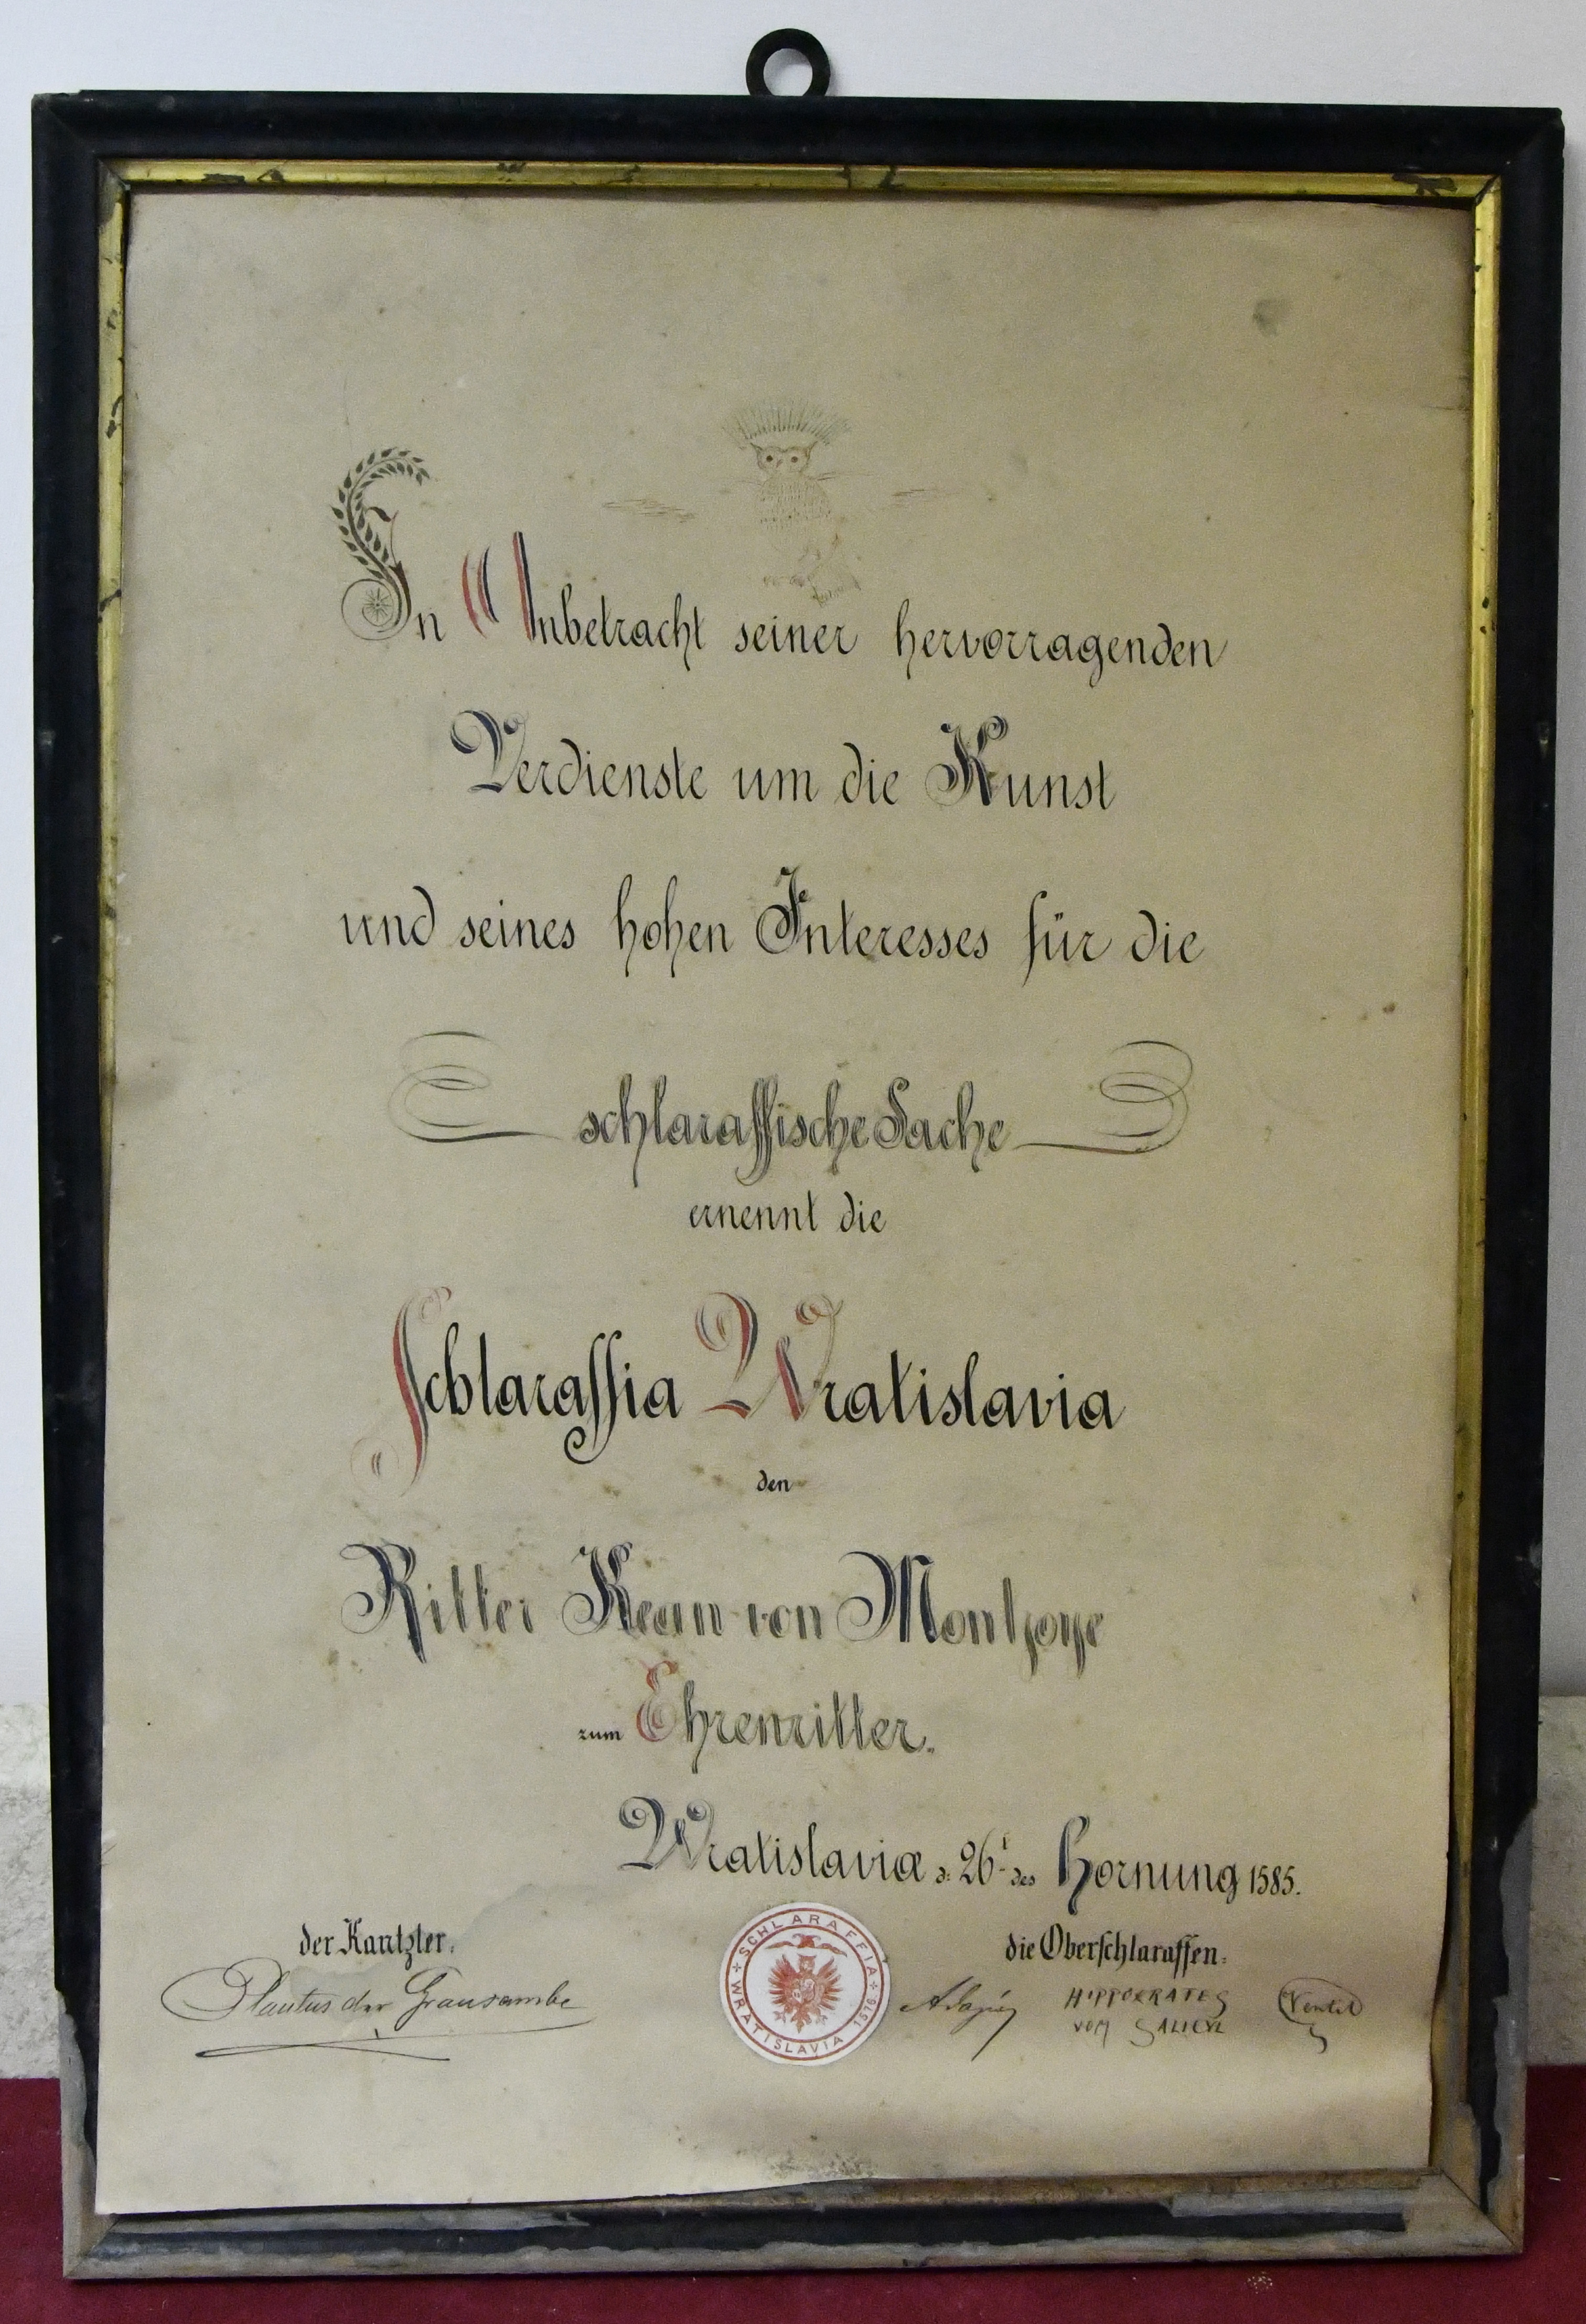 In Anbetracht seiner hervorragenden
Verdienste um die Kunst
und seines hohen Interesses für die
schlaraffische Sache
ernennt die
Schlaraffia Wratislavia
den
Ritter Kean von Montjoye
zum Ehrenritter.
Wratislavia d. 26t. des Hornung 1585.
der Kantzler.
die Oberschlaraffen:
Plautus der Grausambe
SCHLARAFFIA
WRATISLAVIA 1576
HIPPOKRATES
VOM
Ventil